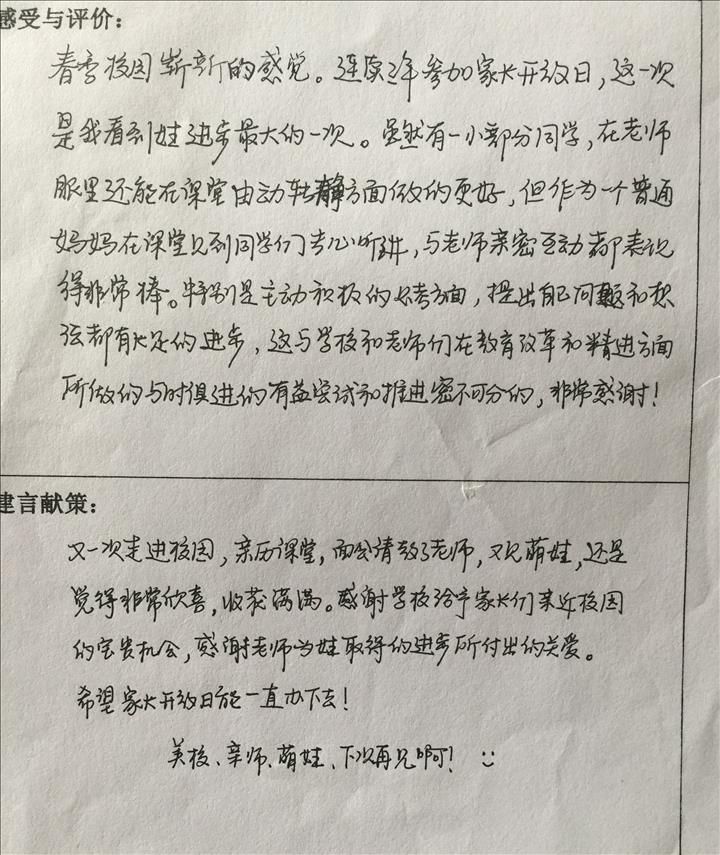 感受与评价：
春季校园崭新的感觉。连续2年参加家长开放日，这一次
是我看到娃进步最大的一次。虽然有一小部分同学，在老师
眼里还能在课堂由动转静方面做的更好，但作为一个普通
妈妈在课堂见到同学们专心听讲，与老师亲密互动都表现
得非常棒。特别是主动积极的思考方面，提出自己问题和想
法都有长足的进步，这与学校和老师们在教育改革和精进方面
所做的与时俱进的有益尝试和推进密不可分的，非常感谢！
建言献策：
又一次走进校园，亲历课堂，面会请教了老师，又见萌娃，还是
觉得非常欣喜，收获满满。感谢学校给予家长们亲近校园
的宝贵机会，感谢老师为娃取得的进步所付出的关爱。
希望家长开放日能一直办下去！
美校、亲师、萌娃、下次再见啊！